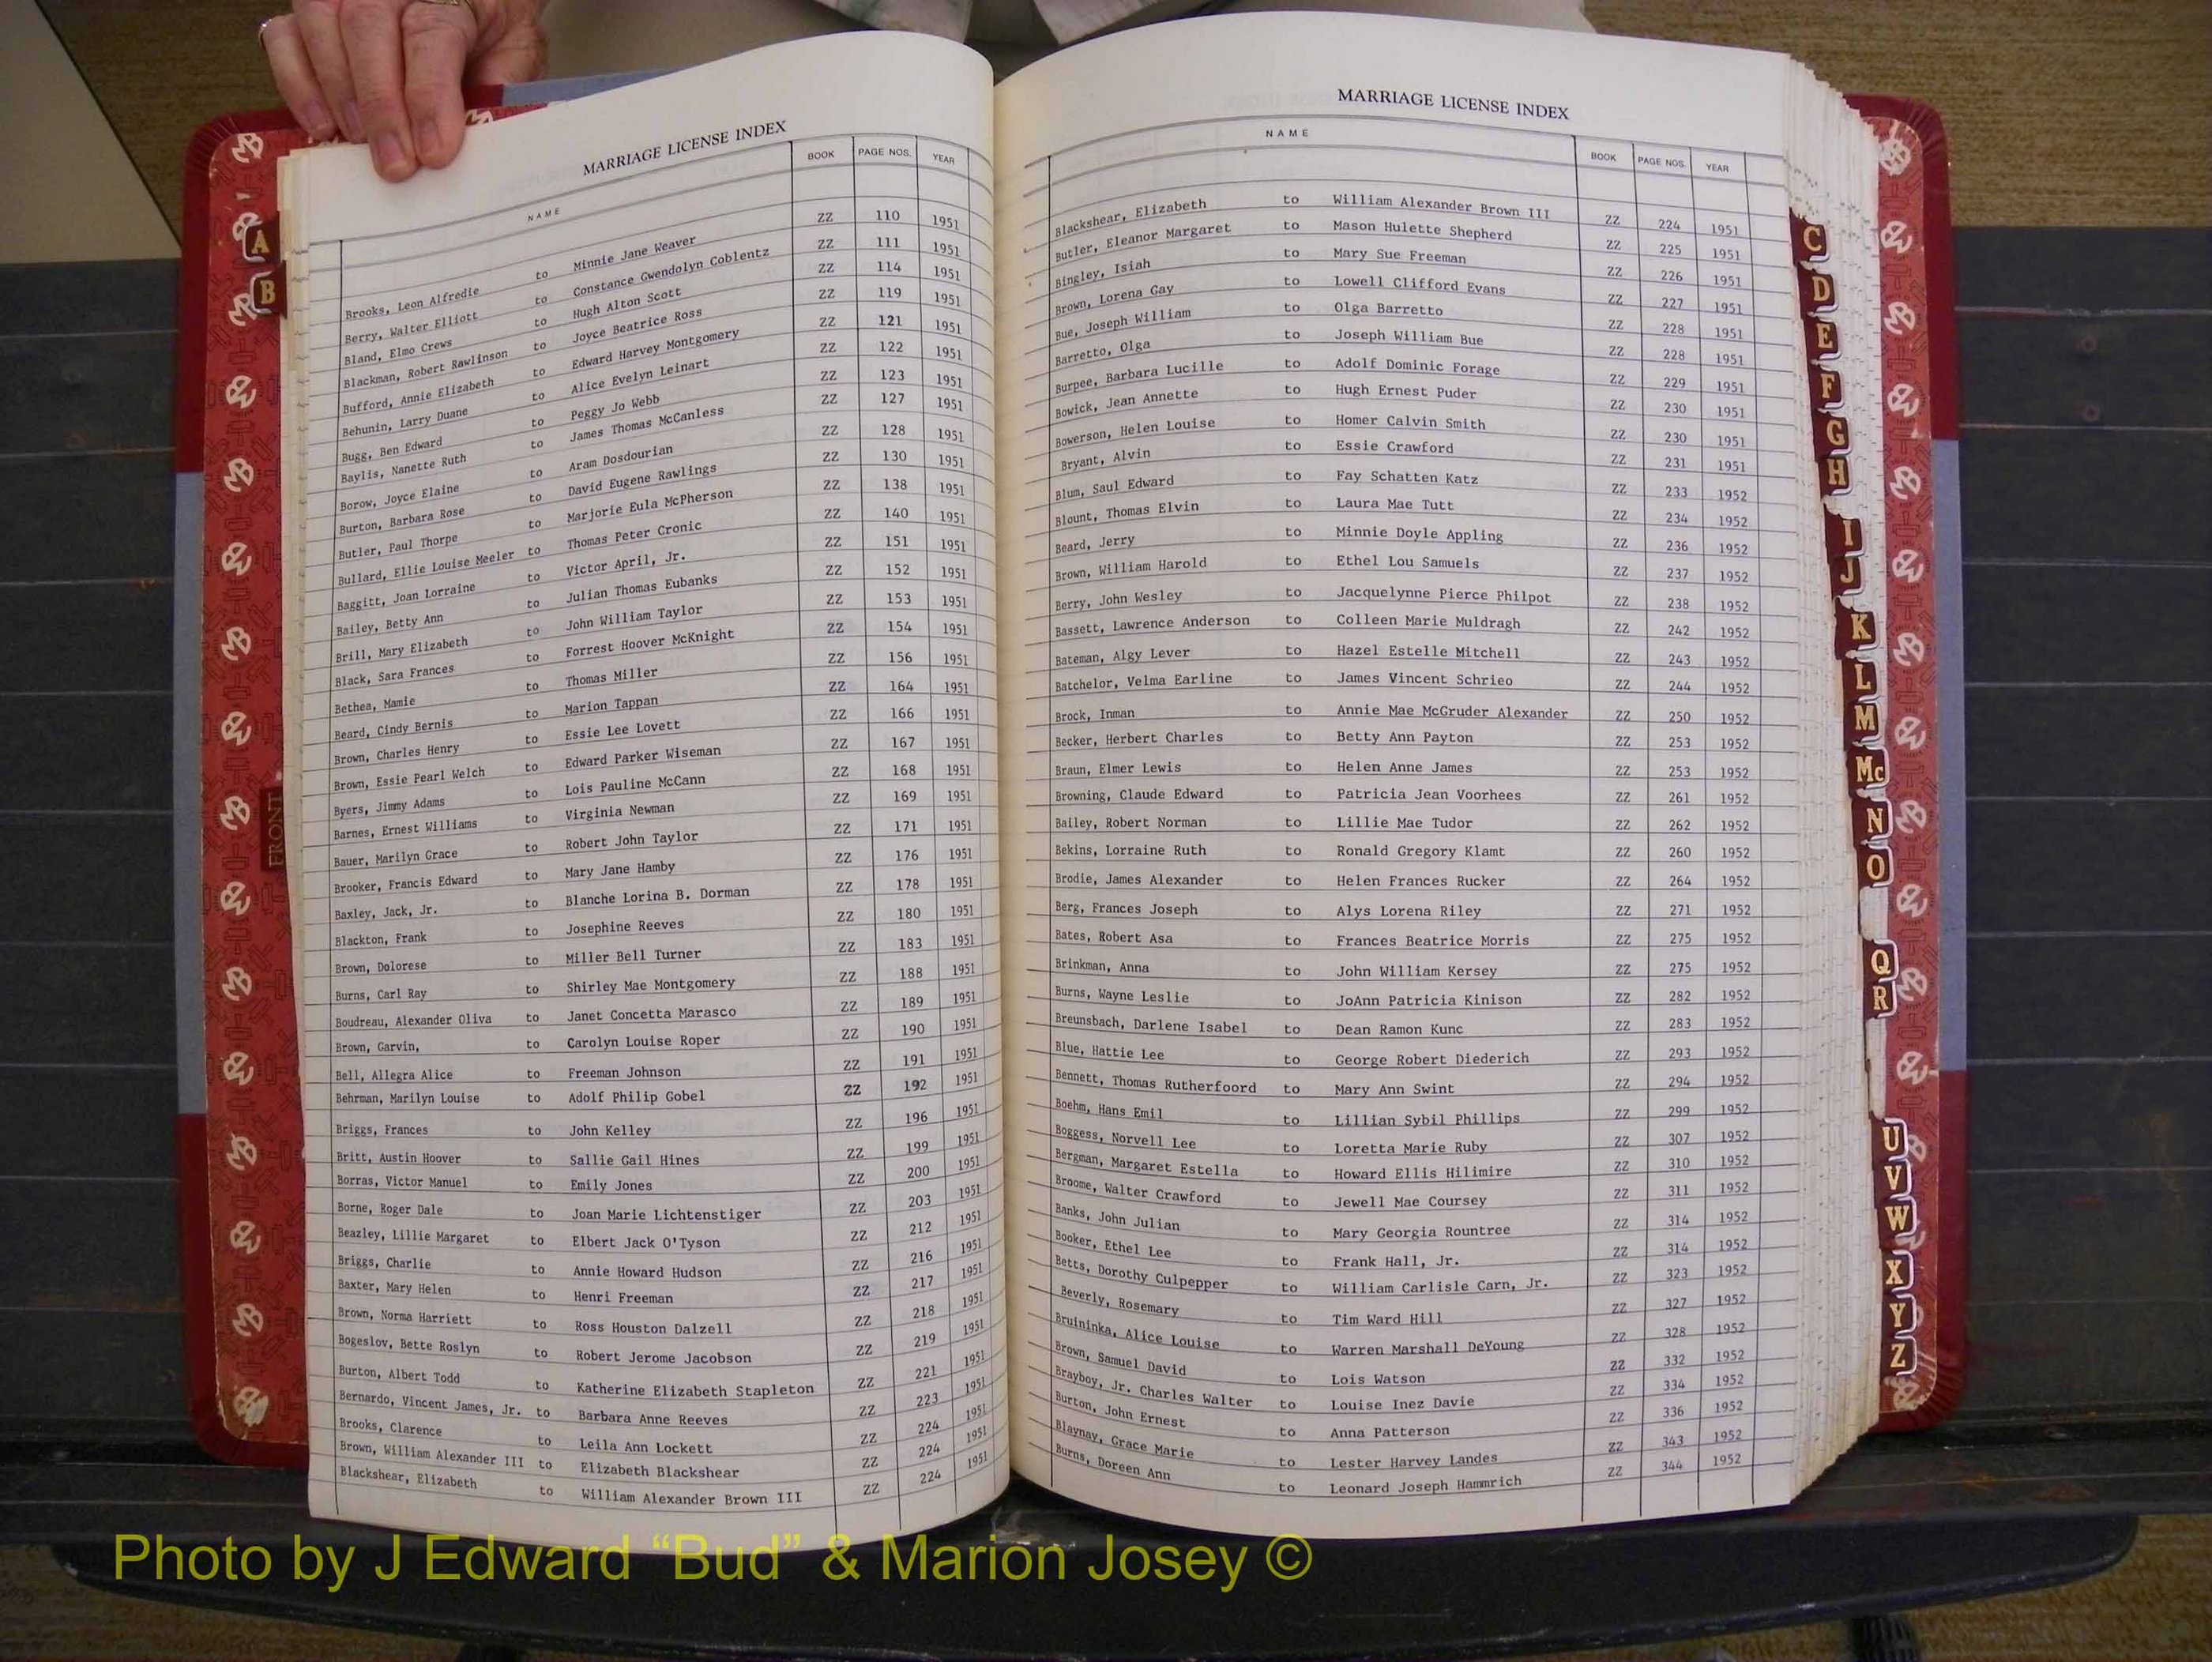 MARRIAGE LICENSE INDEX
NAME BOOK PAGE NOS. YEAR
Brooks, Leon Alfredie to Minnie Jane Weaver ZZ 110 1951
Berry, Walter Elliott to Constance Gwendolyn Coblentz ZZ 111 1951
Bland, Elmo Crews to Hugh Alton Scott ZZ 114 1951
Blackman, Robert Rawlinson to Joyce Beatrice Ross ZZ 119 1951
Bufford, Annie Elizabeth to Edward Harvey Montgomery ZZ 121 1951
Behunin, Larry Duane to Alice Evelyn Leinart ZZ 122 1951
Bugg, Ben Edward to Peggy Jo Webb ZZ 123 1951
Baylis, Nanette Ruth to James Thomas McCanless ZZ 127 1951
Borow, Joyce Elaine to Aram Dosdourian ZZ 128 1951
Burton, Barbara Rose to David Eugene Rawlings ZZ 130 1951
Butler, Paul Thorpe to Marjorie Eula McPherson ZZ 138 1951
Bullard, Ellie Louise Meeler to Thomas Peter Cronic ZZ 140 1951
Baggitt, Joan Lorraine to Victor April, Jr. ZZ 151 1951
Bailey, Betty Ann to Julian Thomas Eubanks ZZ 152 1951
Brill, Mary Elizabeth to John William Taylor ZZ 153 1951
Black, Sara Frances to Forrest Hoover McKnight ZZ 154 1951
Bethea, Mamie to Thomas Miller ZZ 156 1951
Beard, Cindy Bernis to Marion Tappan ZZ 164 1951
Brown, Charles Henry to Essie Lee Lovett ZZ 166 1951
Brown, Essie Pearl Welch to Edward Parker Wiseman ZZ 167 1951
Byers, Jimmy Adams to Lois Pauline McCann ZZ 168 1951
Barnes, Ernest Williams to Virginia Newman ZZ 169 1951
Bauer, Marilyn Grace to Robert John Taylor ZZ 171 1951
Brooker, Francis Edward to Mary Jane Hamby ZZ 176 1951
Baxley, Jack, Jr. to Blanche Lorina B. Dorman ZZ 178 1951
Blackton, Frank to Josephine Reeves ZZ 180 1951
Brown, Dolorese to Miller Bell Turner ZZ 183 1951
Burns, Carl Ray to Shirley Mae Montgomery ZZ 188 1951
Boudreau, Alexander Oliva to Janet Concetta Marasco ZZ 189 1951
Brown, Garvin, to Carolyn Louise Roper ZZ 190 1951
Bell, Allegra Alice to Freeman Johnson ZZ 191 1951
Behrman, Marilyn Louise to Adolf Philip Gobel ZZ 192 1951
Briggs, Frances to John Kelley ZZ 196 1951
Britt, Austin Hoover to Sallie Gail Hines ZZ 199 1951
Borras, Victor Manuel to Emily Jones ZZ 200 1951
Borne, Roger Dale to Joan Marie Lichtenstiger ZZ 203 1951
Beazley, Lillie Margaret to Elbert Jack O'Tyson ZZ 212 1951
Briggs, Charlie to Annie Howard Hudson ZZ 216 1951
Baxter, Mary Helen to Henri Freeman ZZ 217 1951
Brown, Norma Harriett to Ross Houston Dalzell ZZ 218 1951
Bogeslov, Bette Roslyn to Robert Jerome Jacobson ZZ 219 1951
Burton, Albert Todd to Katherine Elizabeth Stapleton ZZ 221 1951
Bernardo, Vincent James, Jr. to Barbara Anne Reeves ZZ 223 1951
Brooks, Clarence to Leila Ann Lockett ZZ 224 1951
Brown, William Alexander III to Elizabeth Blackshear ZZ 224 1951
Blackshear, Elizabeth to William Alexander Brown III ZZ 224 1951
MARRIAGE LICENSE INDEX
NAME BOOK PAGE NOS. YEAR
Blackshear, Elizabeth to William Alexander Brown III ZZ 224 1951
Butler, Eleanor Margaret to Mason Hulette Shepherd ZZ 225 1951
Bingley, Isiah to Mary Sue Freeman ZZ 226 1951
Brown, Lorena Gay to Lowell Clifford Evans ZZ 227 1951
Bue, Joseph William to Olga Barretto ZZ 228 1951
Barretto, Olga to Joseph William Bue ZZ 228 1951
Burpee, Barbara Lucille to Adolf Dominic Forage ZZ 229 1951
Bowick, Jean Annette to Hugh Ernest Puder ZZ 230 1951
Bowerson, Helen Louise to Homer Calvin Smith ZZ 230 1951
Bryant, Alvin to Essie Crawford ZZ 231 1951
Blum, Saul Edward to Fay Schatten Katz ZZ 233 1952
Blount, Thomas Elvin to Laura Mae Tutt ZZ 234 1952
Beard, Jerry to Minnie Doyle Appling ZZ 236 1952
Brown, William Harold to Ethel Lou Samuels ZZ 237 1952
Berry, John Wesley to Jacquelynne Pierce Philpot ZZ 238 1952
Bassett, Lawrence Anderson to Colleen Marie Muldragh ZZ 242 1952
Bateman, Algy Lever to Hazel Estelle Mitchell ZZ 243 1952
Batchelor, Velma Earline to James Vincent Schrieo ZZ 244 1952
Brock, Inman to Annie Mae McGruder Alexander ZZ 250 1952
Becker, Herbert Charles to Betty Ann Payton ZZ 253 1952
Braun, Elmer Lewis to Helen Anne James ZZ 253 1952
Browning, Claude Edward to Patricia Jean Voorhees ZZ 261 1952
Bailey, Robert Norman to Lillie Mae Tudor ZZ 262 1952
Bekins, Lorraine Ruth to Ronald Gregory Klamt ZZ 260 1952
Brodie, James Alexander to Helen Frances Rucker ZZ 264 1952
Berg, Frances Joseph to Alys Lorena Riley ZZ 271 1952
Bates, Robert Asa to Frances Beatrice Morris ZZ 275 1952
Brinkman, Anna to John William Kersey ZZ 275 1952
Burns, Wayne Leslie to JoAnn Patricia Kinison ZZ 282 1952
Breunsbach, Darlene Isabel to Dean Ramon Kunc ZZ 283 1952
Blue, Hattie Lee to George Robert Diederich ZZ 293 1952
Bennett, Thomas Rutherfoord to Mary Ann Swint ZZ 294 1952
Boehm, Hans Emil to Lillian Sybil Phillips ZZ 299 1952
Boggess, Norvell Lee to Loretta Marie Ruby ZZ 307 1952
Bergman, Margaret Estella to Howard Ellis Hilimire ZZ 310 1952
Broome, Walter Crawford to Jewell Mae Coursey ZZ 311 1952
Banks, John Julian to Mary Georgia Rountree ZZ 314 1952
Booker, Ethel Lee to Frank Hall, Jr. ZZ 314 1952
Betts, Dorothy Culpepper to William Carlisle Carn, Jr. ZZ 323 1952
Beverly, Rosemary to Tim Ward Hill ZZ 327 1952
Bruininka, Alice Louise to Warren Marshall DeYoung ZZ 328 1952
Brown, Samuel David to Lois Watson ZZ 332 1952
Brayboy, Jr. Charles Walter to Louise Inez Davie ZZ 334 1952
Burton, John Ernest to Anna Patterson ZZ 336 1952
Blaynay, Grace Marie to Lester Harvey Landes ZZ 343 1952
Burns, Doreen Ann to Leonard Joseph Hammrich ZZ 344 1952
A
B
FRONT
C
D
E
F
G
H
I
J
K
L
M
Mc
N
O
Q
R
U
V
W
X
Y
Z
Photo by J Edward “Bud” & Marion Josey ©